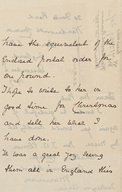 have the equivalent of the
enclosed postal order for
one pound.
I hope to write to her in
good time for Christmas
and tell her what I
have done.
It was a great joy seeing
them all in England this